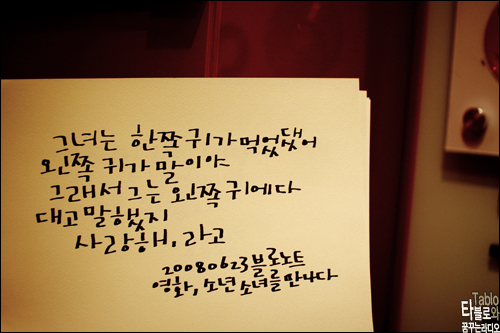 그녀는 한쪽 귀가 먹었댔어
왼쪽 귀가 말이야
그래서 그는 왼쪽 귀에다
대고 말했지
사랑해, 라고
20080623 블로노트
영화, 소년 소녀를 만나다
Tablo
타블로와
꿈꾸는라디오